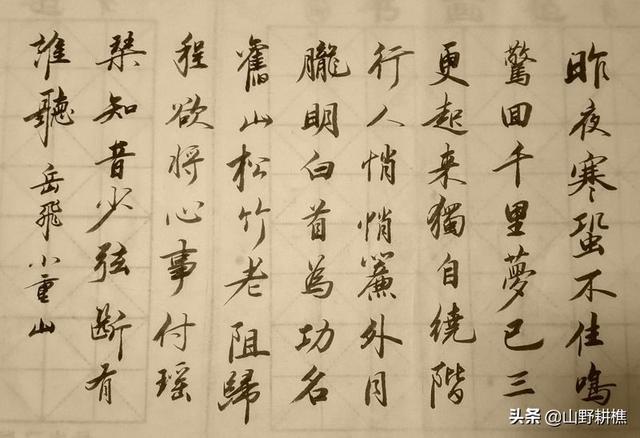 昨夜寒蛩不住鳴
驚回千里夢已三
更起来獨自繞階
行人悄悄簾外月
朧明白首為功名
舊山松竹老阻歸
程欲将心事付瑶
琹知音少弦斷有
誰聽 岳飛小重山
头条 @山野耕樵